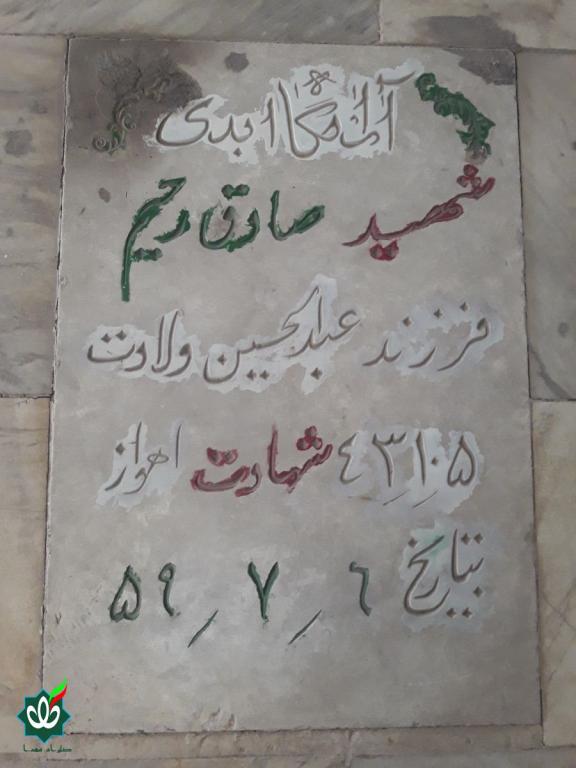 آرامگاه ابدی
شهید صادق رحیم
فرزند عبدالحسین ولادت
۴۳٫۱۰٫۵ شهادت اهواز
بتاریخ ۶٫۷٫۵۹